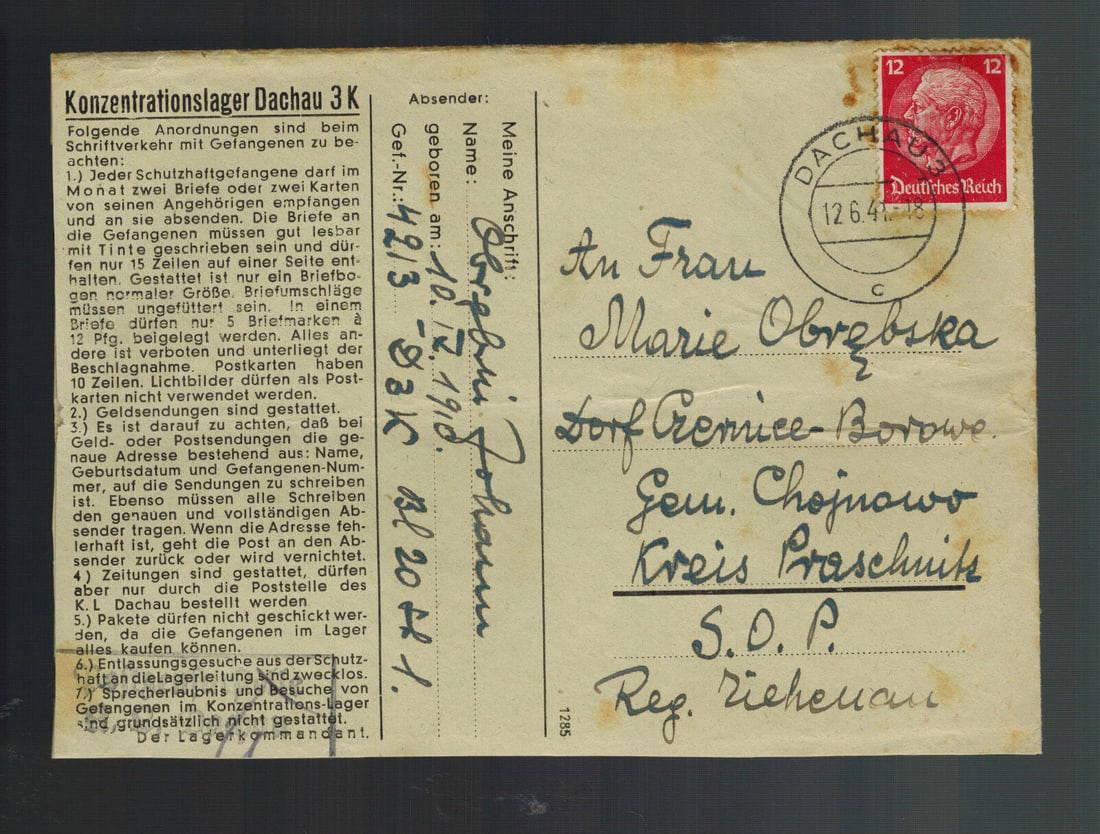 Konzentrationslager Dachau 3 K
Folgende Anordnungen sind beim
Schriftverkehr mit Gefangenen zu be-
achten:
1.) Jeder Schutzhaftgefangene darf im
Monat zwei Briefe oder zwei Karten
von seinen Angehörigen empfangen
und an sie absenden. Die Briefe an
die Gefangenen müssen gut lesbar
mit Tinte geschrieben sein und dür-
fen nur 15 Zeilen auf einer Seite ent-
halten. Gestattet ist nur ein Briefbo-
gen normaler Größe. Briefumschläge
müssen ungefüttert sein. In einem
Briefe dürfen nur 5 Briefmarken à
12 Pfg. beigelegt werden. Alles an-
dere ist verboten und unterliegt der
Beschlagnahme. Postkarten haben
10 Zeilen. Lichtbilder dürfen als Post-
karten nicht verwendet werden.
2.) Geldsendungen sind gestattet.
3.) Es ist darauf zu achten, daß bei
Geld- oder Postsendungen die ge-
naue Adresse bestehend aus: Name,
Geburtsdatum und Gefangenen-Num-
mer, auf die Sendungen zu schreiben
ist. Ebenso müssen alle Schreiben
den genauen und vollständigen Ab-
sender tragen. Wenn die Adresse feh-
lerhaft ist, geht die Post an den Ab-
sender zurück oder wird vernichtet.
4) Zeitungen sind gestattet, dürfen
aber nur durch die Poststelle des
K. L Dachau bestellt werden
5.) Pakete dürfen nicht geschickt wer-
den, da die Gefangenen im Lager
alles kaufen können.
6.) Entlassungsgesuche aus der Schutz-
haft an die Lagerleitung sind zwecklos.
7.) Sprecherlaubnis und Besuche von
Gefangenen im Konzentrations-Lager
sind grundsätzlich nicht gestattet.
Der Lagerkommandant.
Absender:
Meine Anschrift:
Name: Obrębski Johann
geboren am: 10. IV. 1910.
Gef.-Nr.: 4213 - D 3 K Bl 20 St 1.
12 12
Deutsches Reich
DACHAU 3
12.6.41.-18
c
An Frau
Marie Obrębska
Dorf Czernice-Borowe.
Gem. Chojnowo
Kreis Praschnitz
S. O. P.
Reg. Ziehenau
1285